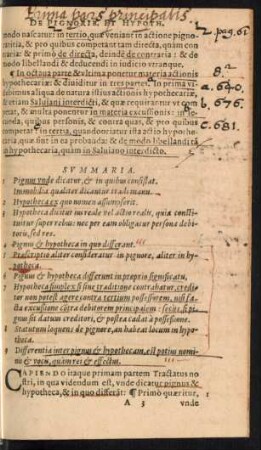 Prima pars principalis.
DE PIGNORIB. ET HYPOTH.
modo nascatur: in tertio, quæ veniant in actione pigno-
ratitia, & pro quibus competat tam directa, quàm con-
traria: & primò de directa, deindè de contraria: & de
modo libellandi & deducendi in iudicio vtranque.
¶ In octaua parte & vltima ponetur materia actionis
hypothecariæ: & diuiditur in tres partes. In prima vi-
debimus aliqua de natura istius actionis hypothecariæ,
etiam Saluiani interdicti, & quæ requirantur vt compe-
tat, & multa ponentur in materia excussionis: in
secunda, quibus & contra quos, & pro quibus competat?
In tertia, quando oriatur ista actio hypotheca-
ria, quæ sint in ea probanda: & de modo libellandi tã
in hypothecaria, quàm in Saluiano interdicto.
2. pag. 61
8.a
a. 640.
b. 676.
c. 681.
SVMMARIA.
Pignus vnde dicatur, & in quibus consistat.
Immobilia qualiter dicantur tradi manu.
Hypotheca ex quo nomen assumpserit.
Hypotheca dicitur ius reale vel actus realis, quia consti-
tuitur super rebus: nec per eam obligatur persona debi-
toris, sed res.
Pignus & hypotheca in quo differant.
Præscriptio aliter consideratur in pignore, aliter in hy-
potheca.
Pignus & hypotheca differunt in proprio significatu,
Hypotheca simplex si sine traditione contrahatur, credi-
tor non potest agere contra tertium possessorem, nisi fa-
cta excussione contra debitorem principalem: secus, si pi-
gnus sit datum creditori, & postea cadat à possessione.
Statutum loquens de pignore, an habeat locum in hypo-
theca.
Differentia inter pignus & hypothecam, est potius nomi-
nis & vocis, quàm rei & effectus.
CAPIENDO itaque primam partem Tractatus no-
stri, in qua videndum est, vnde dicatur pignus &
hypotheca, & in quo differãt: ¶ Primò quæritur,
A 3 vnde